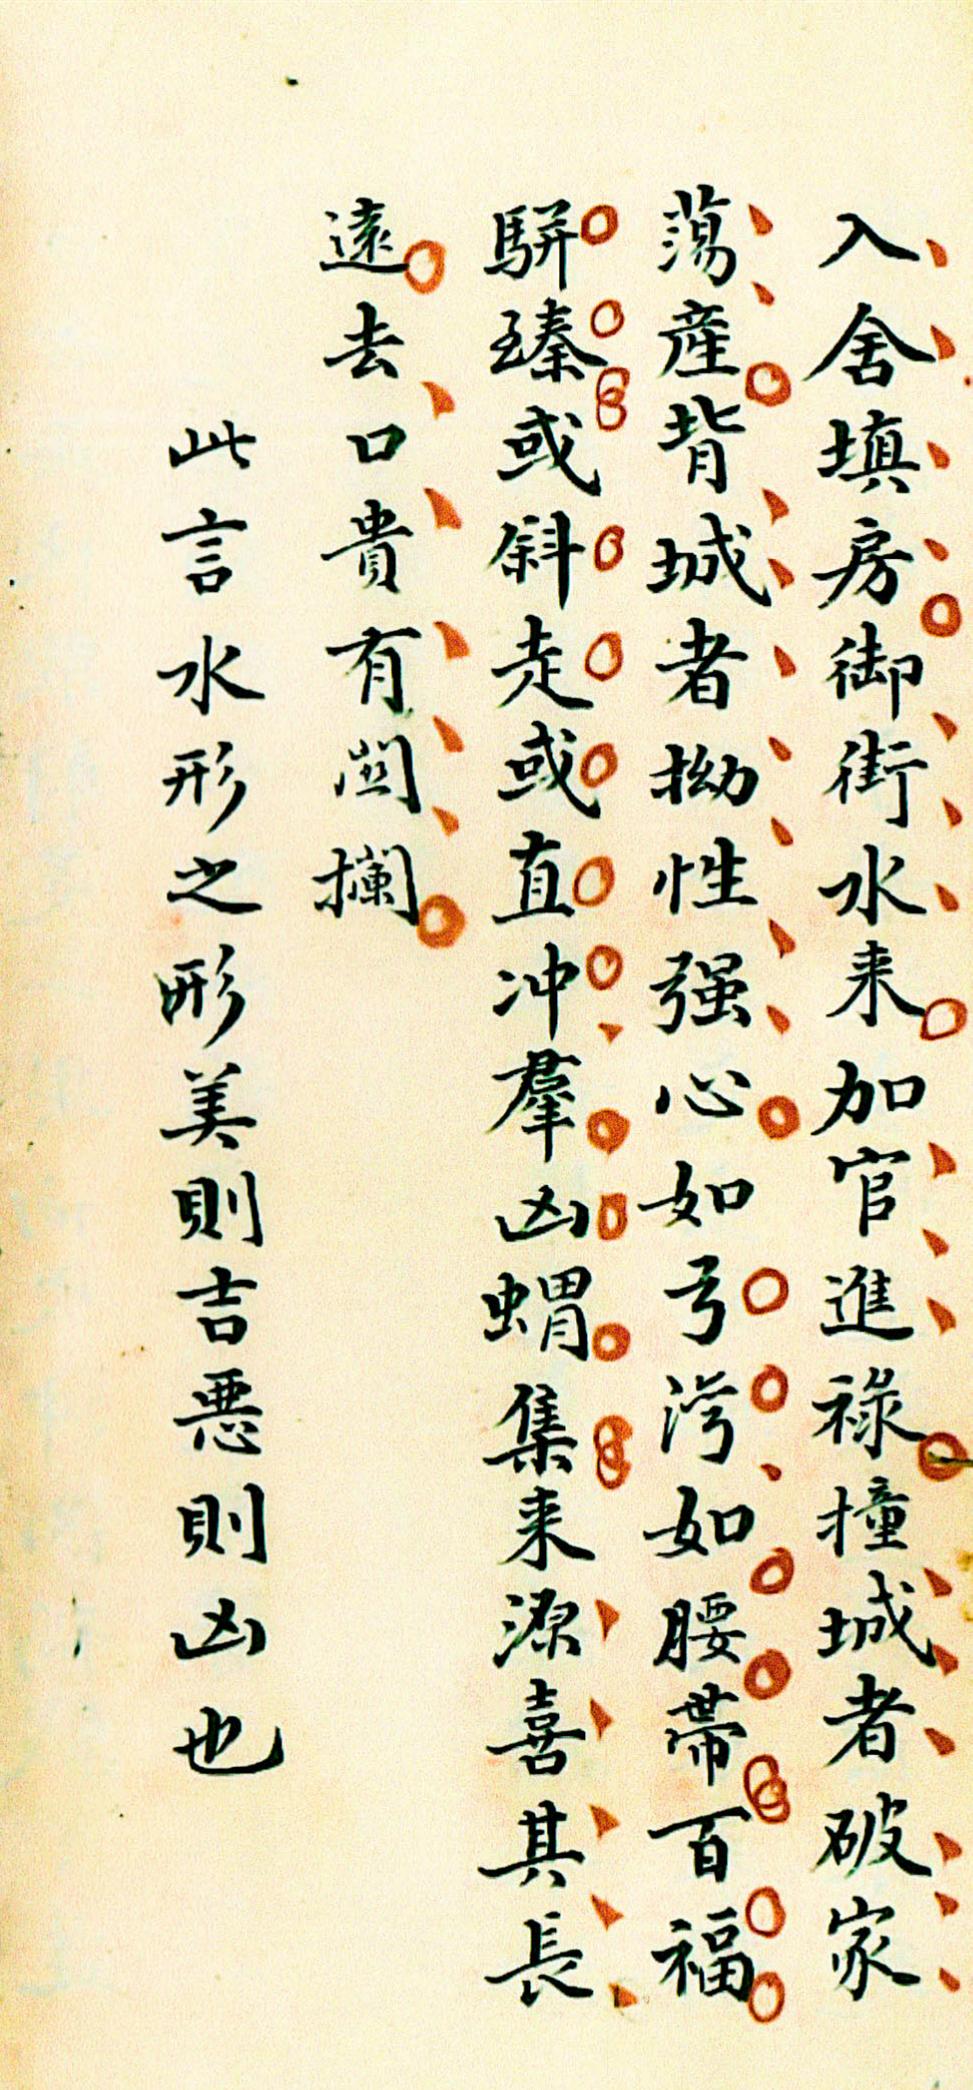 入舍填房御街水来加官進祿撞城者破家
蕩產背城者拗性强心如弓灣如腰帶百福
駢臻或斜走或直冲羣凶蝟集来源喜其長
遠去口貴有関攔
此言水形之形美則吉惡則凶也